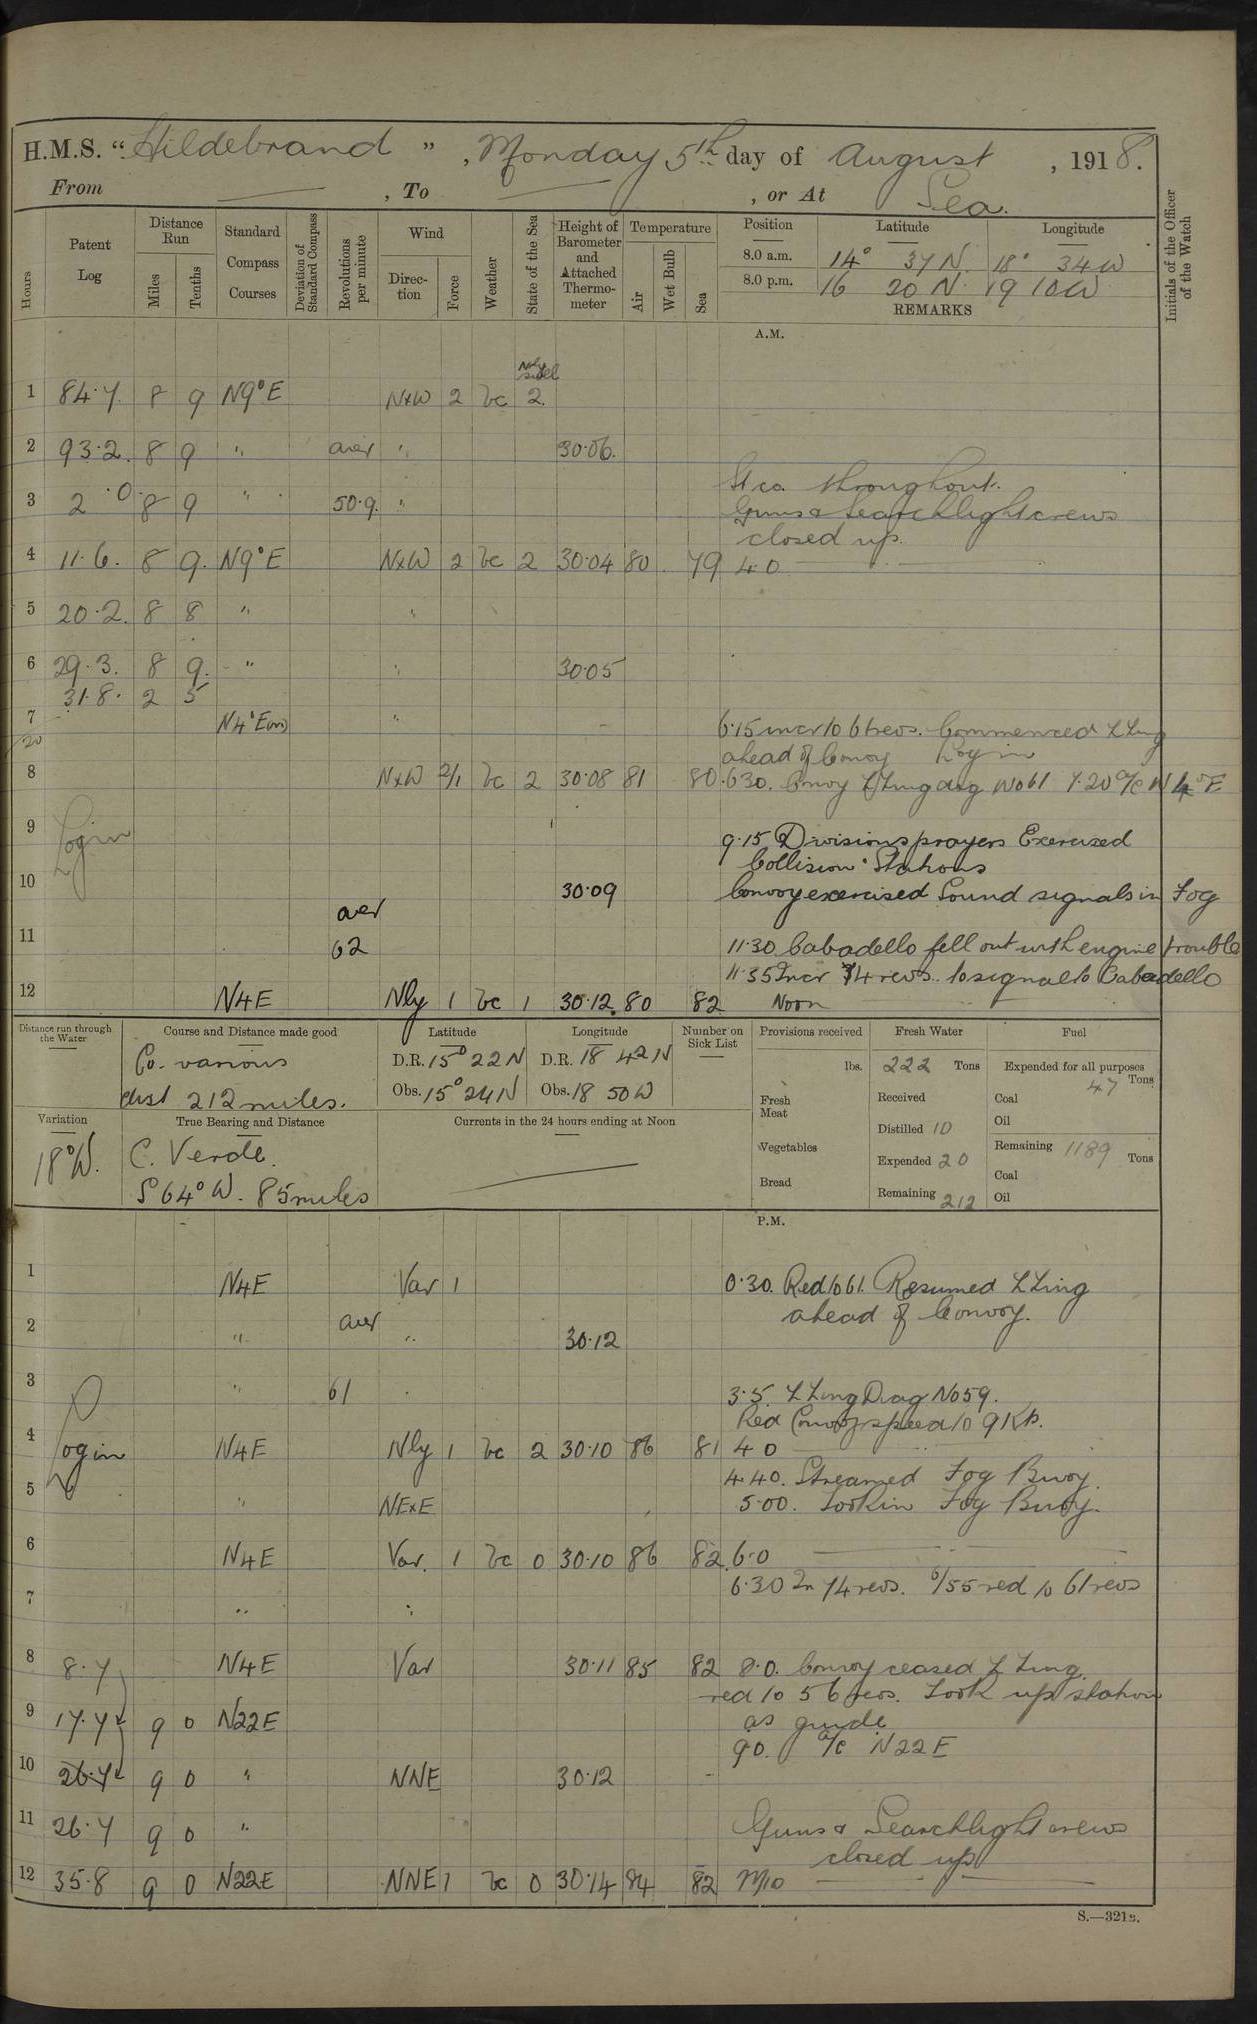 H.M.S. "Hildebrand", Monday 5th day of August, 1918.
From — , To — , or At Sea.
Hours Patent Log Distance Run Miles Tenths Standard Compass Courses Deviation of Standard Compass Revolutions per minute Wind Direction Force Weather State of the Sea Height of Barometer and Attached Thermometer Temperature Air Wet Bulb Sea Position Latitude Longitude Initials of the Officer of the Watch
8.0 a.m. 14° 37 N. 18° 34 W
8.0 p.m. 16 20 N. 19 10 W
REMARKS
A.M.
Nly swell
1 84.7 8 9 N9°E NxW 2 bc 2
2 93.2 8 9 " aver " 30.06.
Stco. throughout.
3 2.0 8 9 " 50.9. " Guns & Searchlight crews
closed up.
4 11.6. 8 9. N9°E NxW 2 bc 2 30.04 80 79 4 0
5 20.2. 8 8 " "
6 29.3. 8 9. " " 30.05
31.8. 2 5
7 N4°E " 6.15 incr to 61 revs. Commenced ZZing
20 ahead of Convoy Log in
8 NxW 2/1 bc 2 30.08 81 80 6.30. Convoy ZZing diag No 61 7.20 a/c N 4° E
9 Log in 9.15 Divisions prayers Exercised
Collision Stations
10 30.09 Convoy exercised Sound signals in Fog
aver
11 62 11.30 Cabadello fell out with engine trouble
11.35 Incr 74 revs. to signal to Cabadello
12 N4E Nly 1 bc 1 30.12 80 82 Noon
Distance run through the Water Course and Distance made good Latitude Longitude Number on Sick List Provisions received Fresh Water Fuel
Co. various
dist 212 miles.
D.R. 15° 22 N D.R. 18 42 N
Obs. 15° 24 N Obs. 18 50 W
lbs. Fresh Meat Vegetables Bread
222 Tons
Received
Distilled 10
Expended 20
Remaining 212
Expended for all purposes
47 Tons
Coal
Oil
Remaining 1189 Tons
Coal
Oil
Variation True Bearing and Distance Currents in the 24 hours ending at Noon
18°W. C. Verde.
S 64° W. 85 miles
P.M.
1 N4E Var 1 0.30. Red to 61. Resumed ZZing
ahead of Convoy.
2 " aver " 30.12
3 " 61 3.5. ZZing Diag No 59.
Red Convoy speed to 9 Kts.
4 Log in N4E Nly 1 bc 2 30.10 86 81 4 0
4.40. Streamed Fog Buoy.
5 " NExE 5.00. Took in Fog Buoy.
6 N4E Var. 1 bc 0 30.10 86 82 6.0
6.30 In 74 revs. 6/55 red to 61 revs
7 " "
8 8.7 N4E Var 30.11 85 82 8.0. Convoy ceased ZZing.
red to 56 revs. Took up station
9 17.7 9 0 N22E as guide
9 0. a/c N22E
10 26.7 9 0 " NNE 30.12
11 26.7 9 0 " Guns & Searchlight crews
closed up
12 35.8 9 0 N22E NNE 1 bc 0 30.14 84 82 M/D
S.—321B.